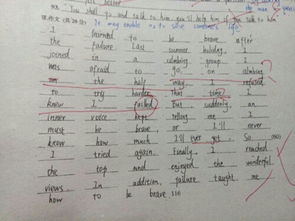 "You shall go and talk to him you'll help him if you talk to him
It may enable us to solve
I learned to be brave after
the failure Last summer holiday, I
joined in a climbing group. I
was afraid to go on climbing
the half way. I
to try harder. That time I
knew I failed. But suddenly, an
inner voice kept telling me I
must be brave, or I'll never
know how much I'll ever get. So
I tried again. Finally I reached
the top and enjoyed the wonderful
views. In addition, failure taught me
how to be brave